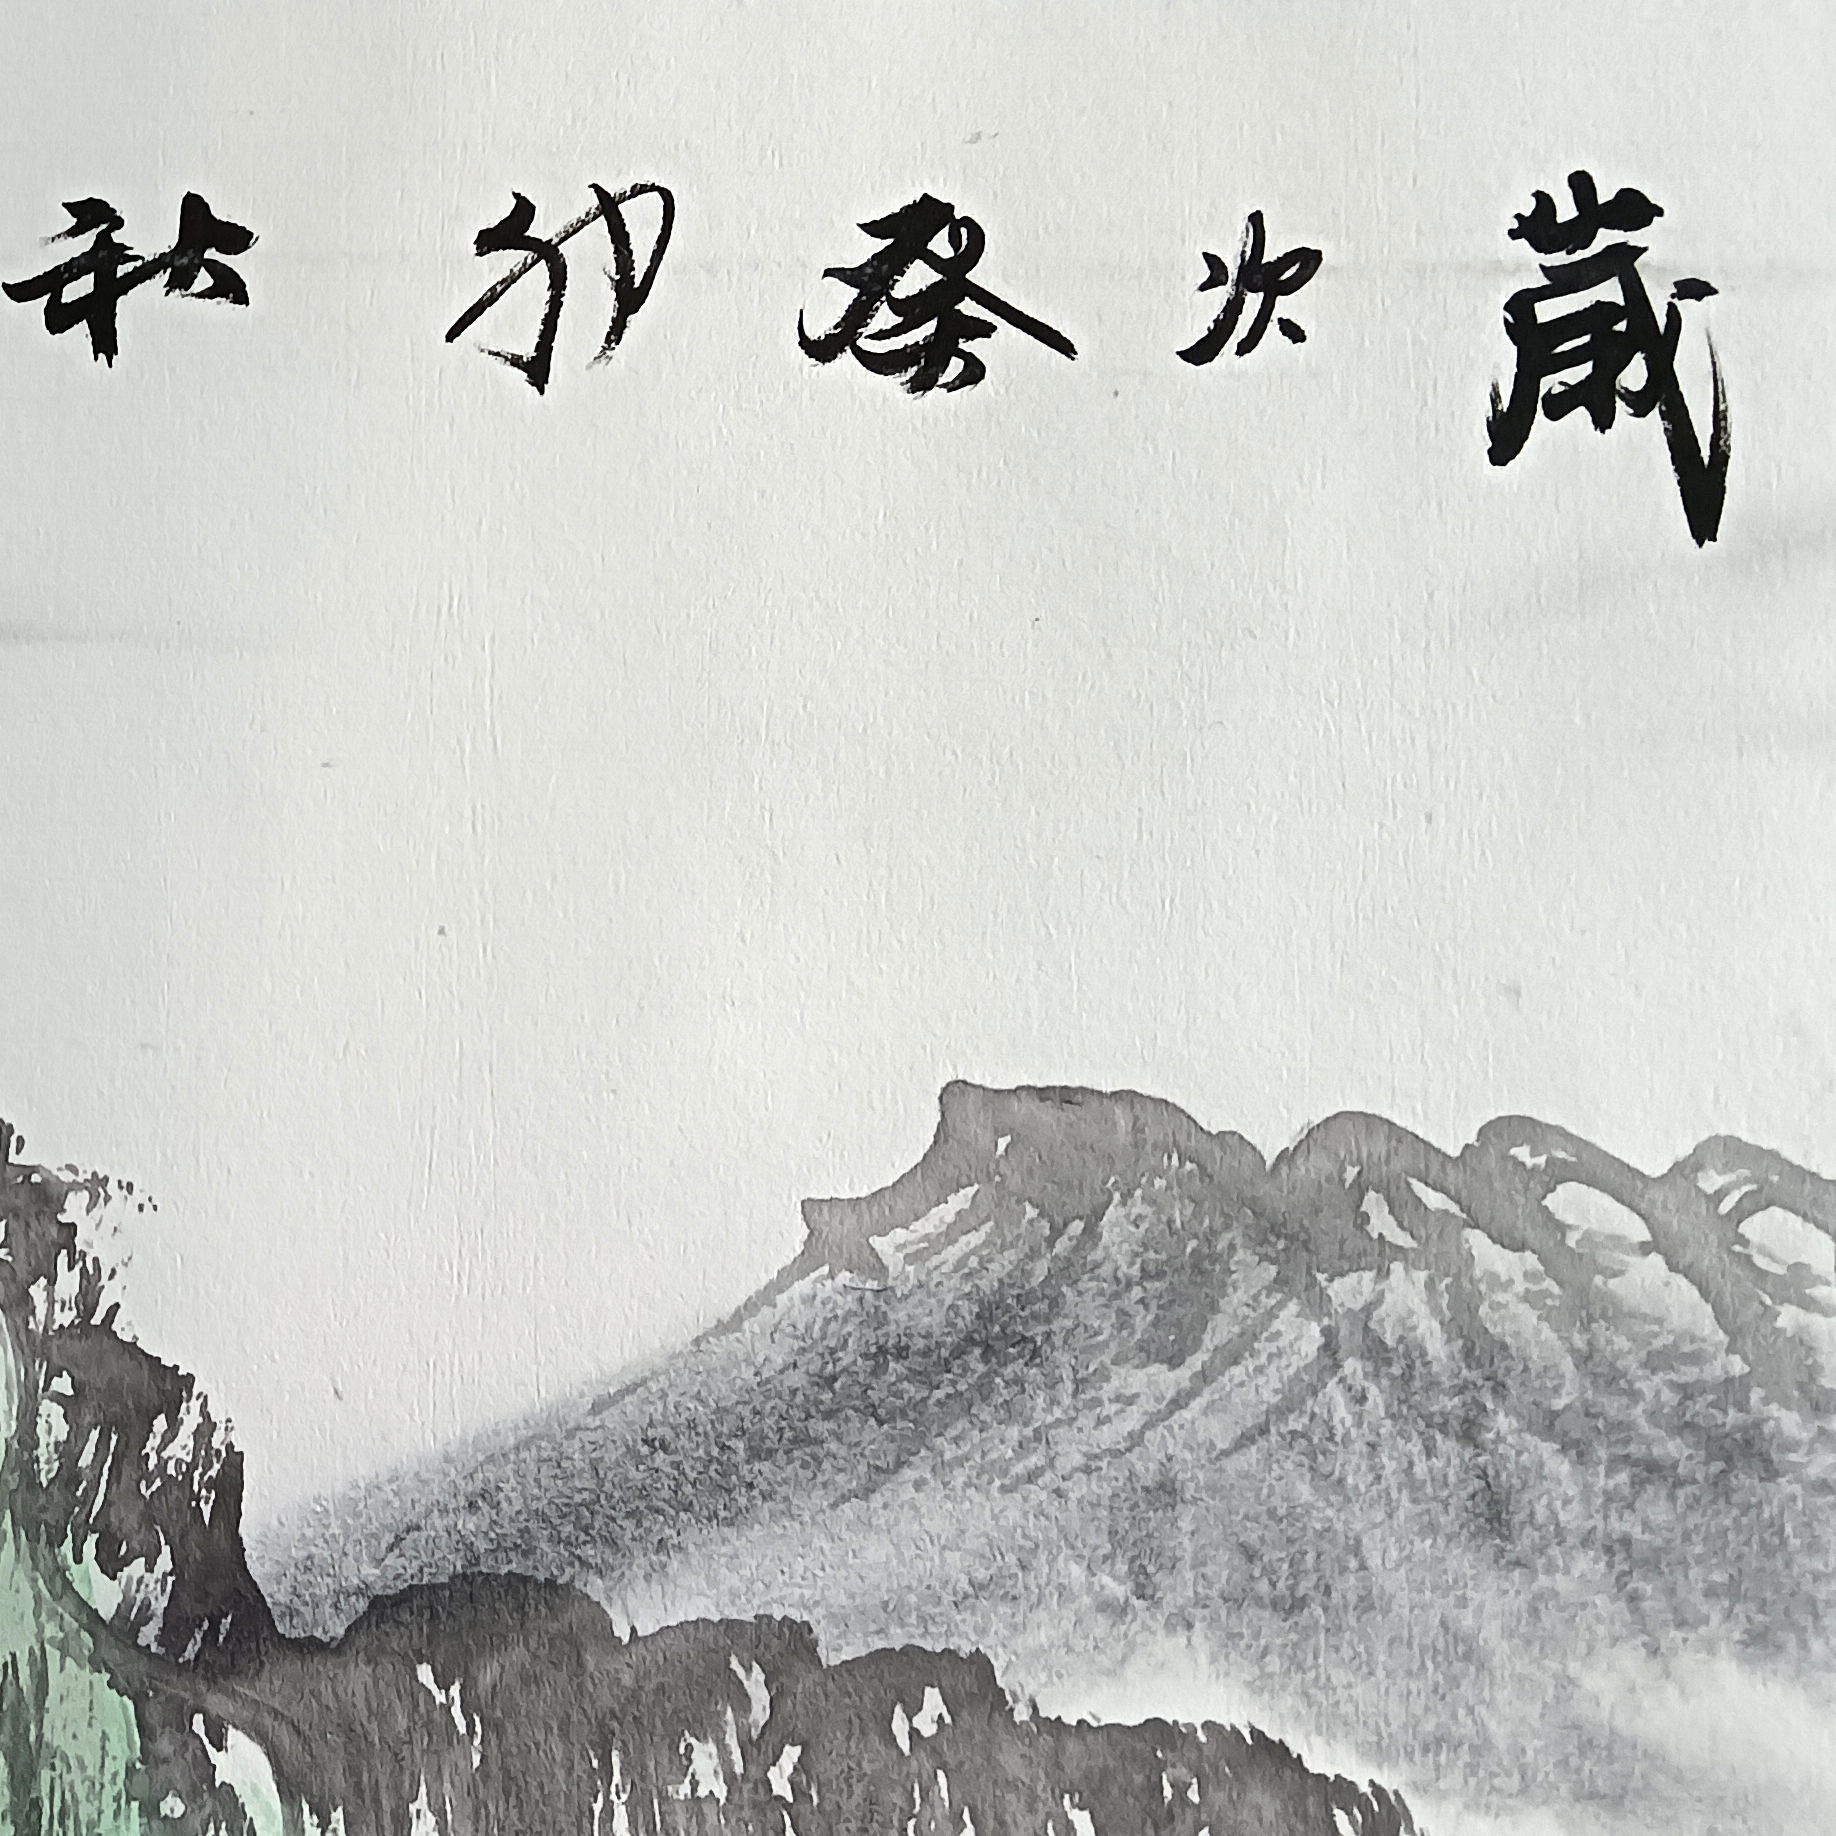 歲次癸卯秋